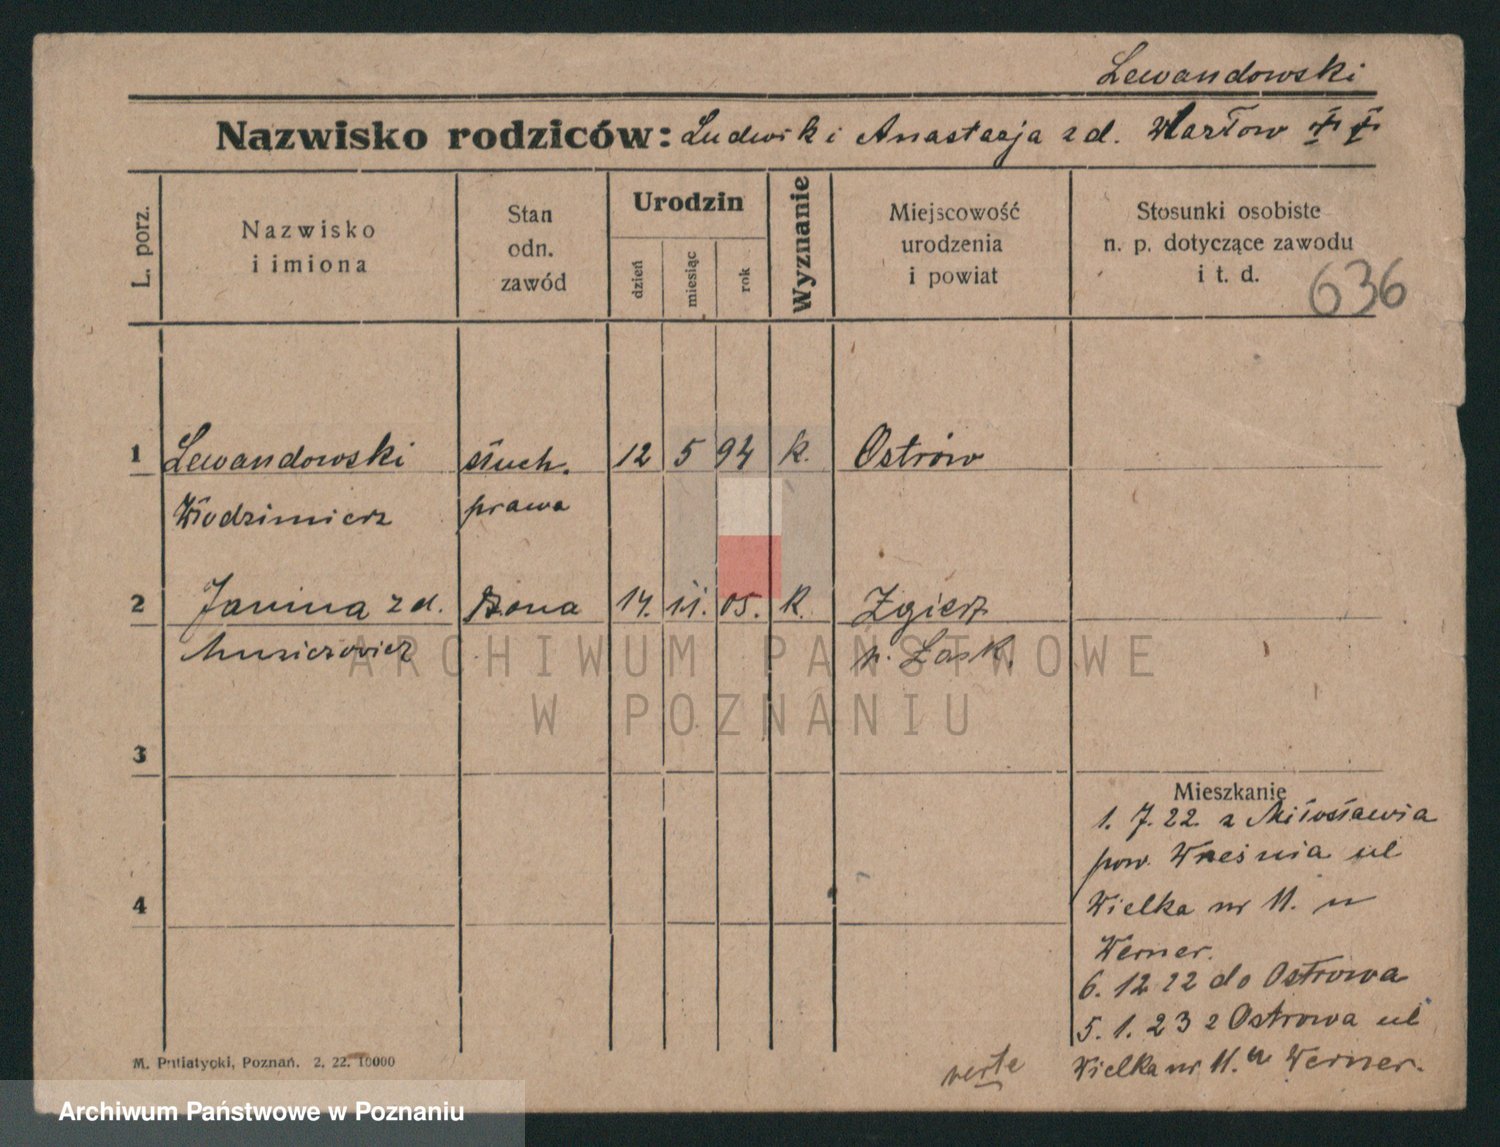 Lewandowski
Nazwisko rodziców: Ludwik i Anastazja z d. Warłow
L. porz.
Nazwisko
i imiona
Stan
odn.
zawód
Urodzin
dzień
miesiąc
rok
Wyznanie
Miejscowość
urodzenia
i powiat
Stosunki osobiste
n. p. dotyczące zawodu
i t. d.
636
1 Lewandowski słuch. 12 5 94 k. Ostrów
Włodzimierz prawa
2 Janina z d. żona 14. 11. 05. k. Zgierz
p. Łask.
3
Mieszkanie
1. 7. 22 z Miłosławia
pow. Września ul
4
Wielka nr 11. u
Werner.
6. 12 22 do Ostrowa
5. 1. 23 z Ostrowa ul
Wielka nr 11. u Werner.
verte
M. Putiatycki, Poznań. 2. 22. 10000
ARCHIWUM PAŃSTWOWE
W POZNANIU
Archiwum Państwowe w Poznaniu